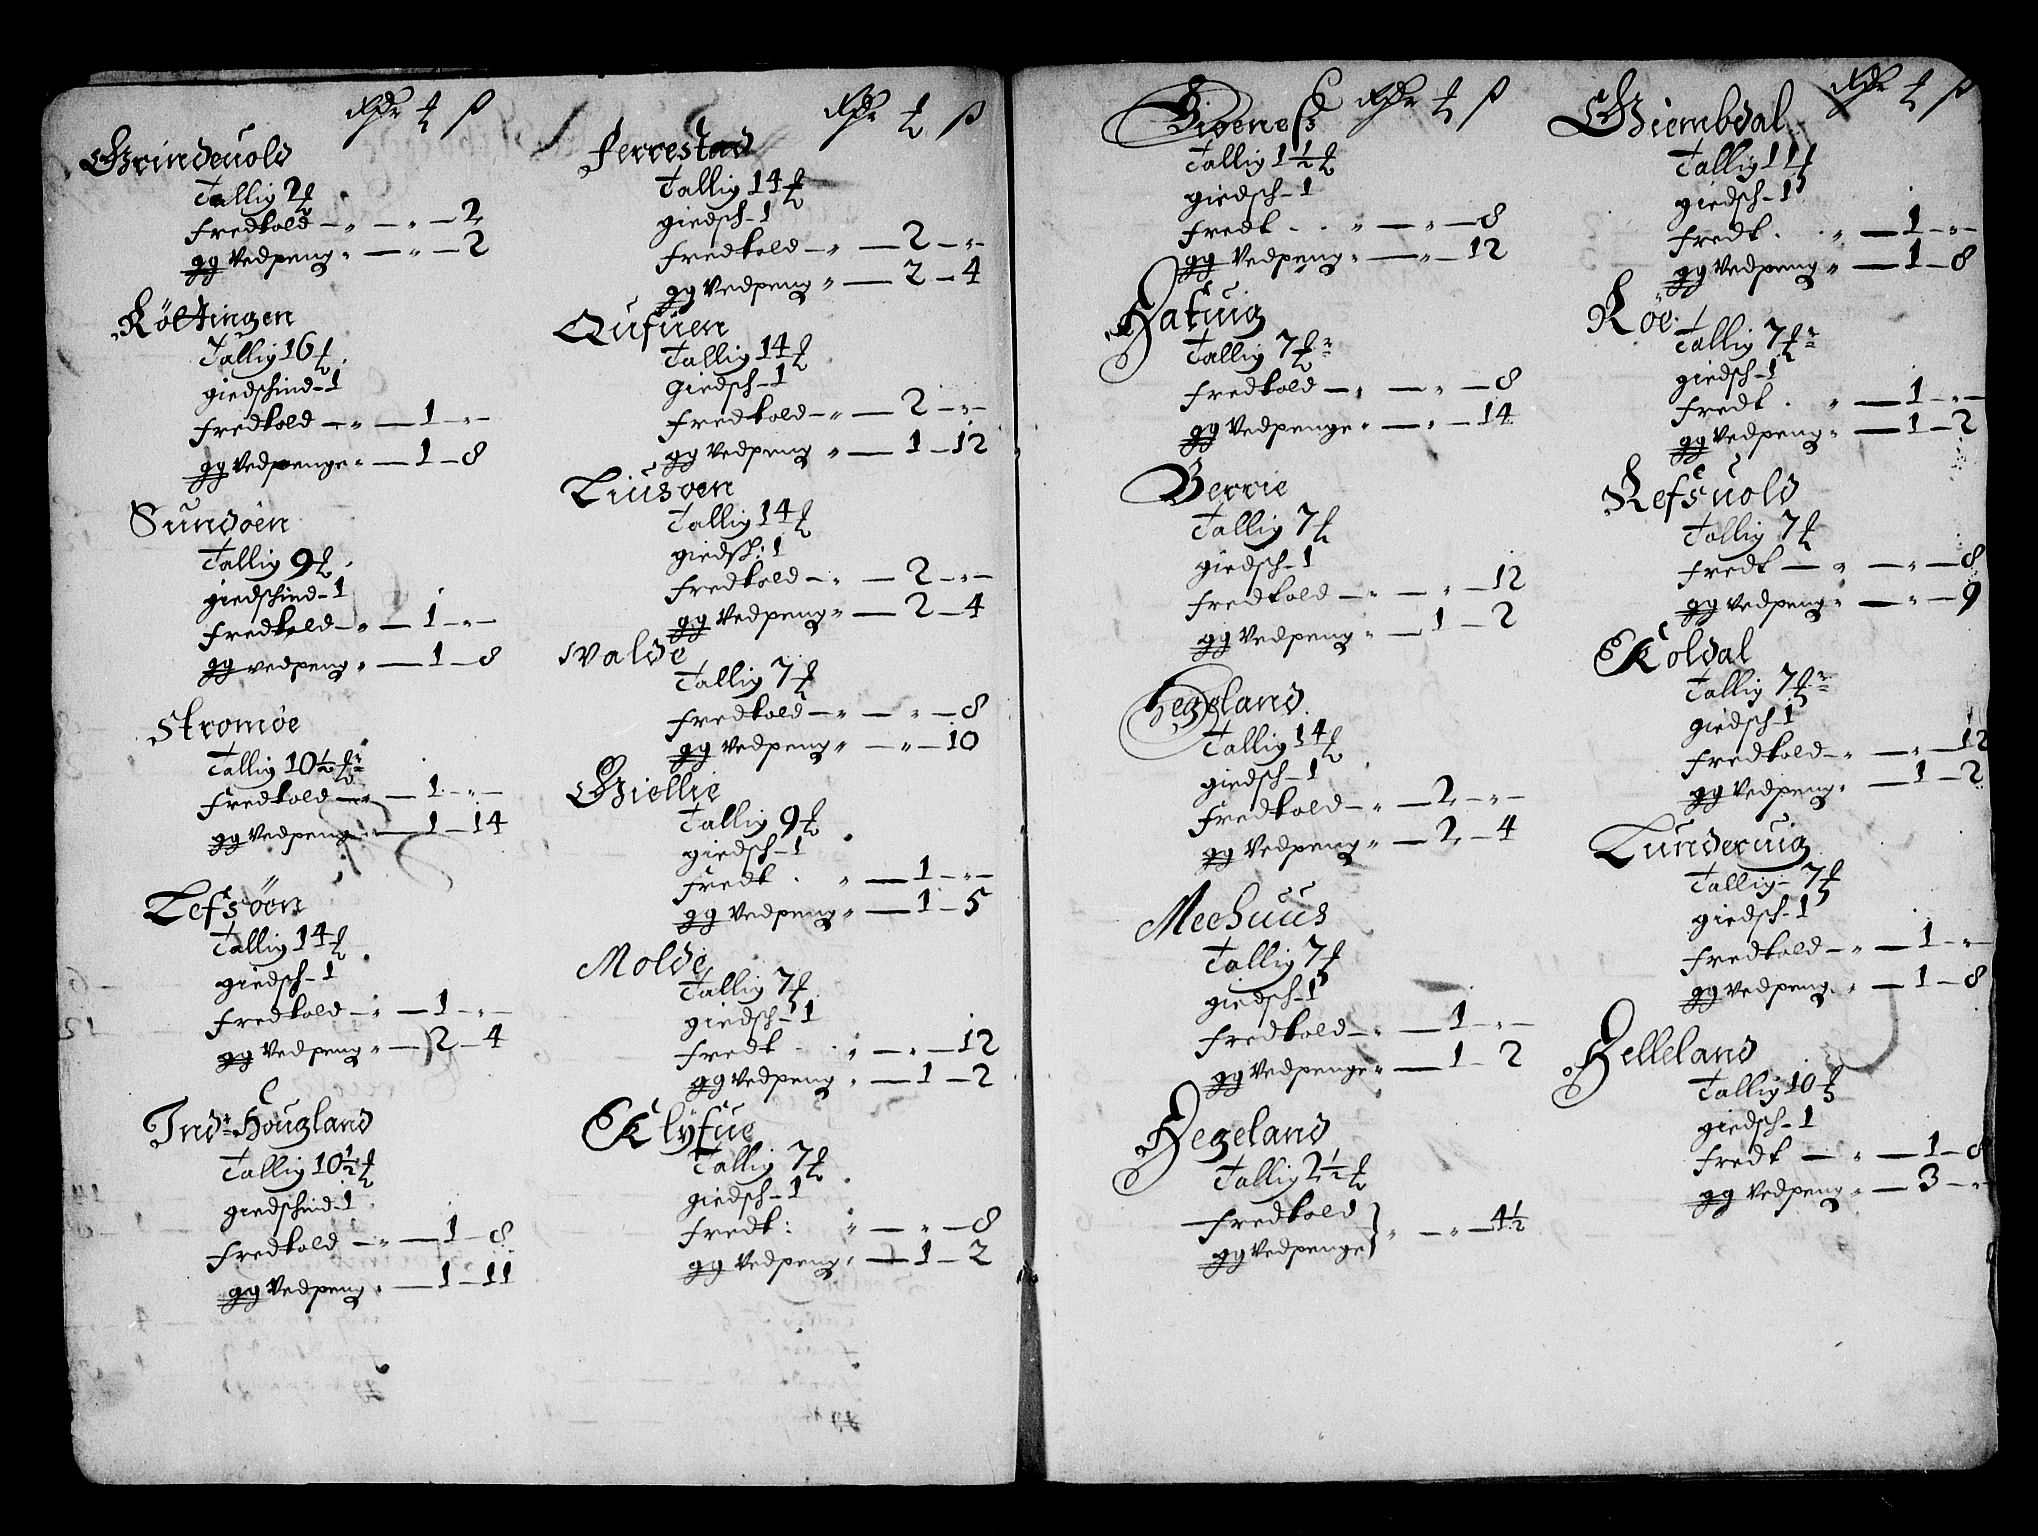 Rdr ₰ ß
Grindeuold
Tallig 2 ₰
Fredtold – „ – „ – 2
gg Vedpeng „ – „ – 2
Röttingen
Tallig 16 ₰
giedschind – 1
Fredtold – „ – 1 – „ –
gg Vedpenge „ – 1 – 8
Sundöen
Tallig 9 ₰
giedschind – 1
Fredtold – „ – 1 – „ –
gg vedpeng „ – 1 – 8
Stromöe
Tallig 10½ ₰r
Fredtold – „ – 1 – „ –
gg Vedpeng „ – 1 – 14
Lefsöen
Tallig 14 ₰
giedsch – 1
Fredtold – „ – 1 – „ –
gg Vedpeng „ – 2 – 4
Indr Hougland
Tallig 10½ ₰
giedschind – 1
Fredtold – „ – 1 – 8
gg Vedpeng „ – 1 – 11
Rdr ₰ ß
Ferrestad
Tallig 14 ₰
giedsch – 1
Fredtold – „ – 2 – „ –
gg Vedpeng „ – 2 – 4
Qufuen
Tallig 14 ₰
Giedsch – 1
Fredtold – „ – 2 – „ –
gg Vedpeng „ – 1 – 12
Liusoen
Tallig 14 ₰
giedsch: 1
Fredtold – „ – 2 – „ –
gg Vedpeng „ – 2 – 4
Walde
Tallig 7 ₰
Fredtold – „ – „ – 8
gg Vedpeng „ – „ – 10
Giellie
Tallig 9 ₰
giedsch – 1
Fredt . „ – 1 – „ –
gg Vedpeng „ – 1 – 5
Molde
Tallig 7 ₰
giedsch – 1
Fredt . „ – „ – 12
gg Vedpeng „ – 1 – 2
Klyfue
Tallig 7 ₰
giedsch – 1
Fredt: „ – „ – 8
gg Vedpeng „ – 1 – 2
Rdr ₰ ß
Gioeneß
Tallig 1½ ₰
giedsch – 1
Fredt . . „ – „ – 8
gg Vedpeng „ – „ – 12
Hatuig
Tallig 7 ₰r
Fredtold – „ – „ – 8
gg Vedpenge „ – „ – 14
Berrie
Tallig 7 ₰
giedsch – 1
Fredtold – „ – „ – 12
gg Vedpeng „ – 1 – 2
Hegeland
Tallig 14 ₰
giedsch – 1
Fredtold – „ – 2 – „ –
gg Vedpeng „ – 2 – 4
Meehuus
Tallig 7 ₰
giedsch – 1
Fredtold – „ – 1 – „ –
gg Vedpenge „ – 1 – 2
Hegeland
Tallig 2½ ₰
Fredtold } „ – „ – 4½
gg Vedpenge
Rdr ₰ ß
Giembdal
Tallig 11 ₰
giedsch – 1
Fredt . . „ – 1 – „ –
gg Vedpeng „ – 1 – 8
Röe
Tallig 7 ₰r
giedsch – 1
Fredt . „ – 1 – „ –
gg Vedpeng „ – 1 – 2
Refsuold
Tallig 7 ₰
Fredt – „ – „ – 8
gg Vedpeng „ – „ – 9
Koldal
Tallig 7 ₰r
giedsch – 1
Fredtold – „ – „ – 12
gg Vedpeng „ – 1 – 2
Lunderuig
Tallig – 7 ₰
giedsch – 1
Fredtold – „ – 1 – „ –
gg Vedpeng „ – 1 – 8
Helleland
Tallig 10 ₰
giedsch – 1
Fredt – „ – 1 – 8
gg Vedpeng „ – 3 – „ –